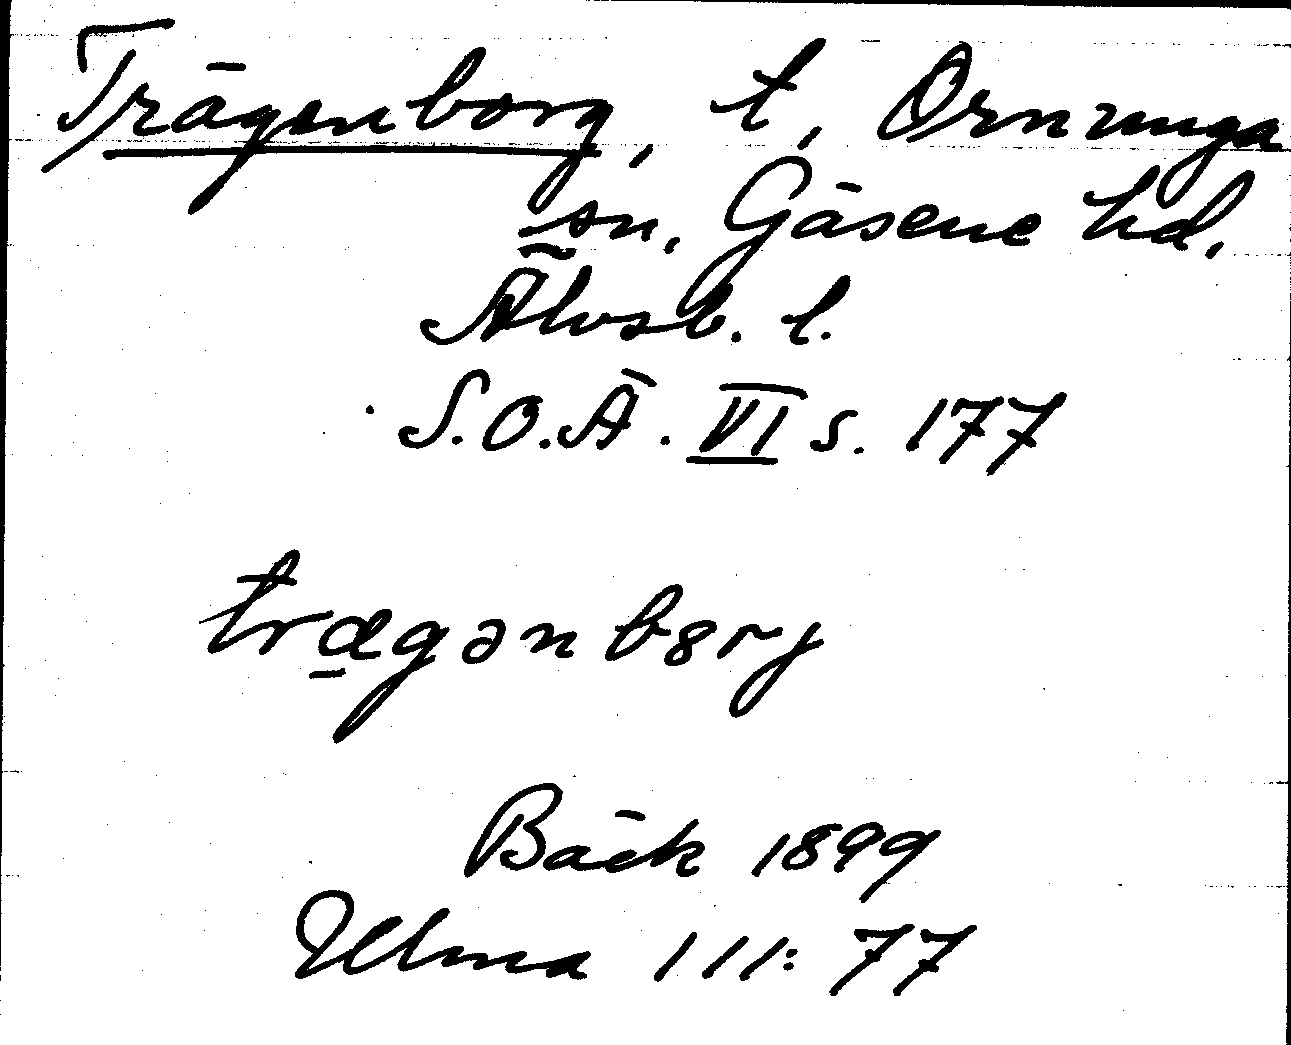 Trägenborg, t, Ornunga
sn, Gäsene hd.
Älvsb. l.
S.O.Ä. VI s. 177
trægənbɞrj
Bäck 1899
Ulma 111:77